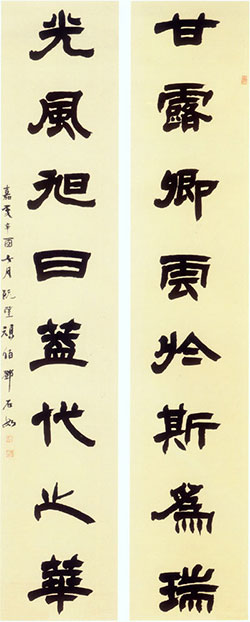 甘露卿雲於斯爲瑞
光風旭日蓋代之華
嘉慶辛酉五月既望頑伯鄧石如